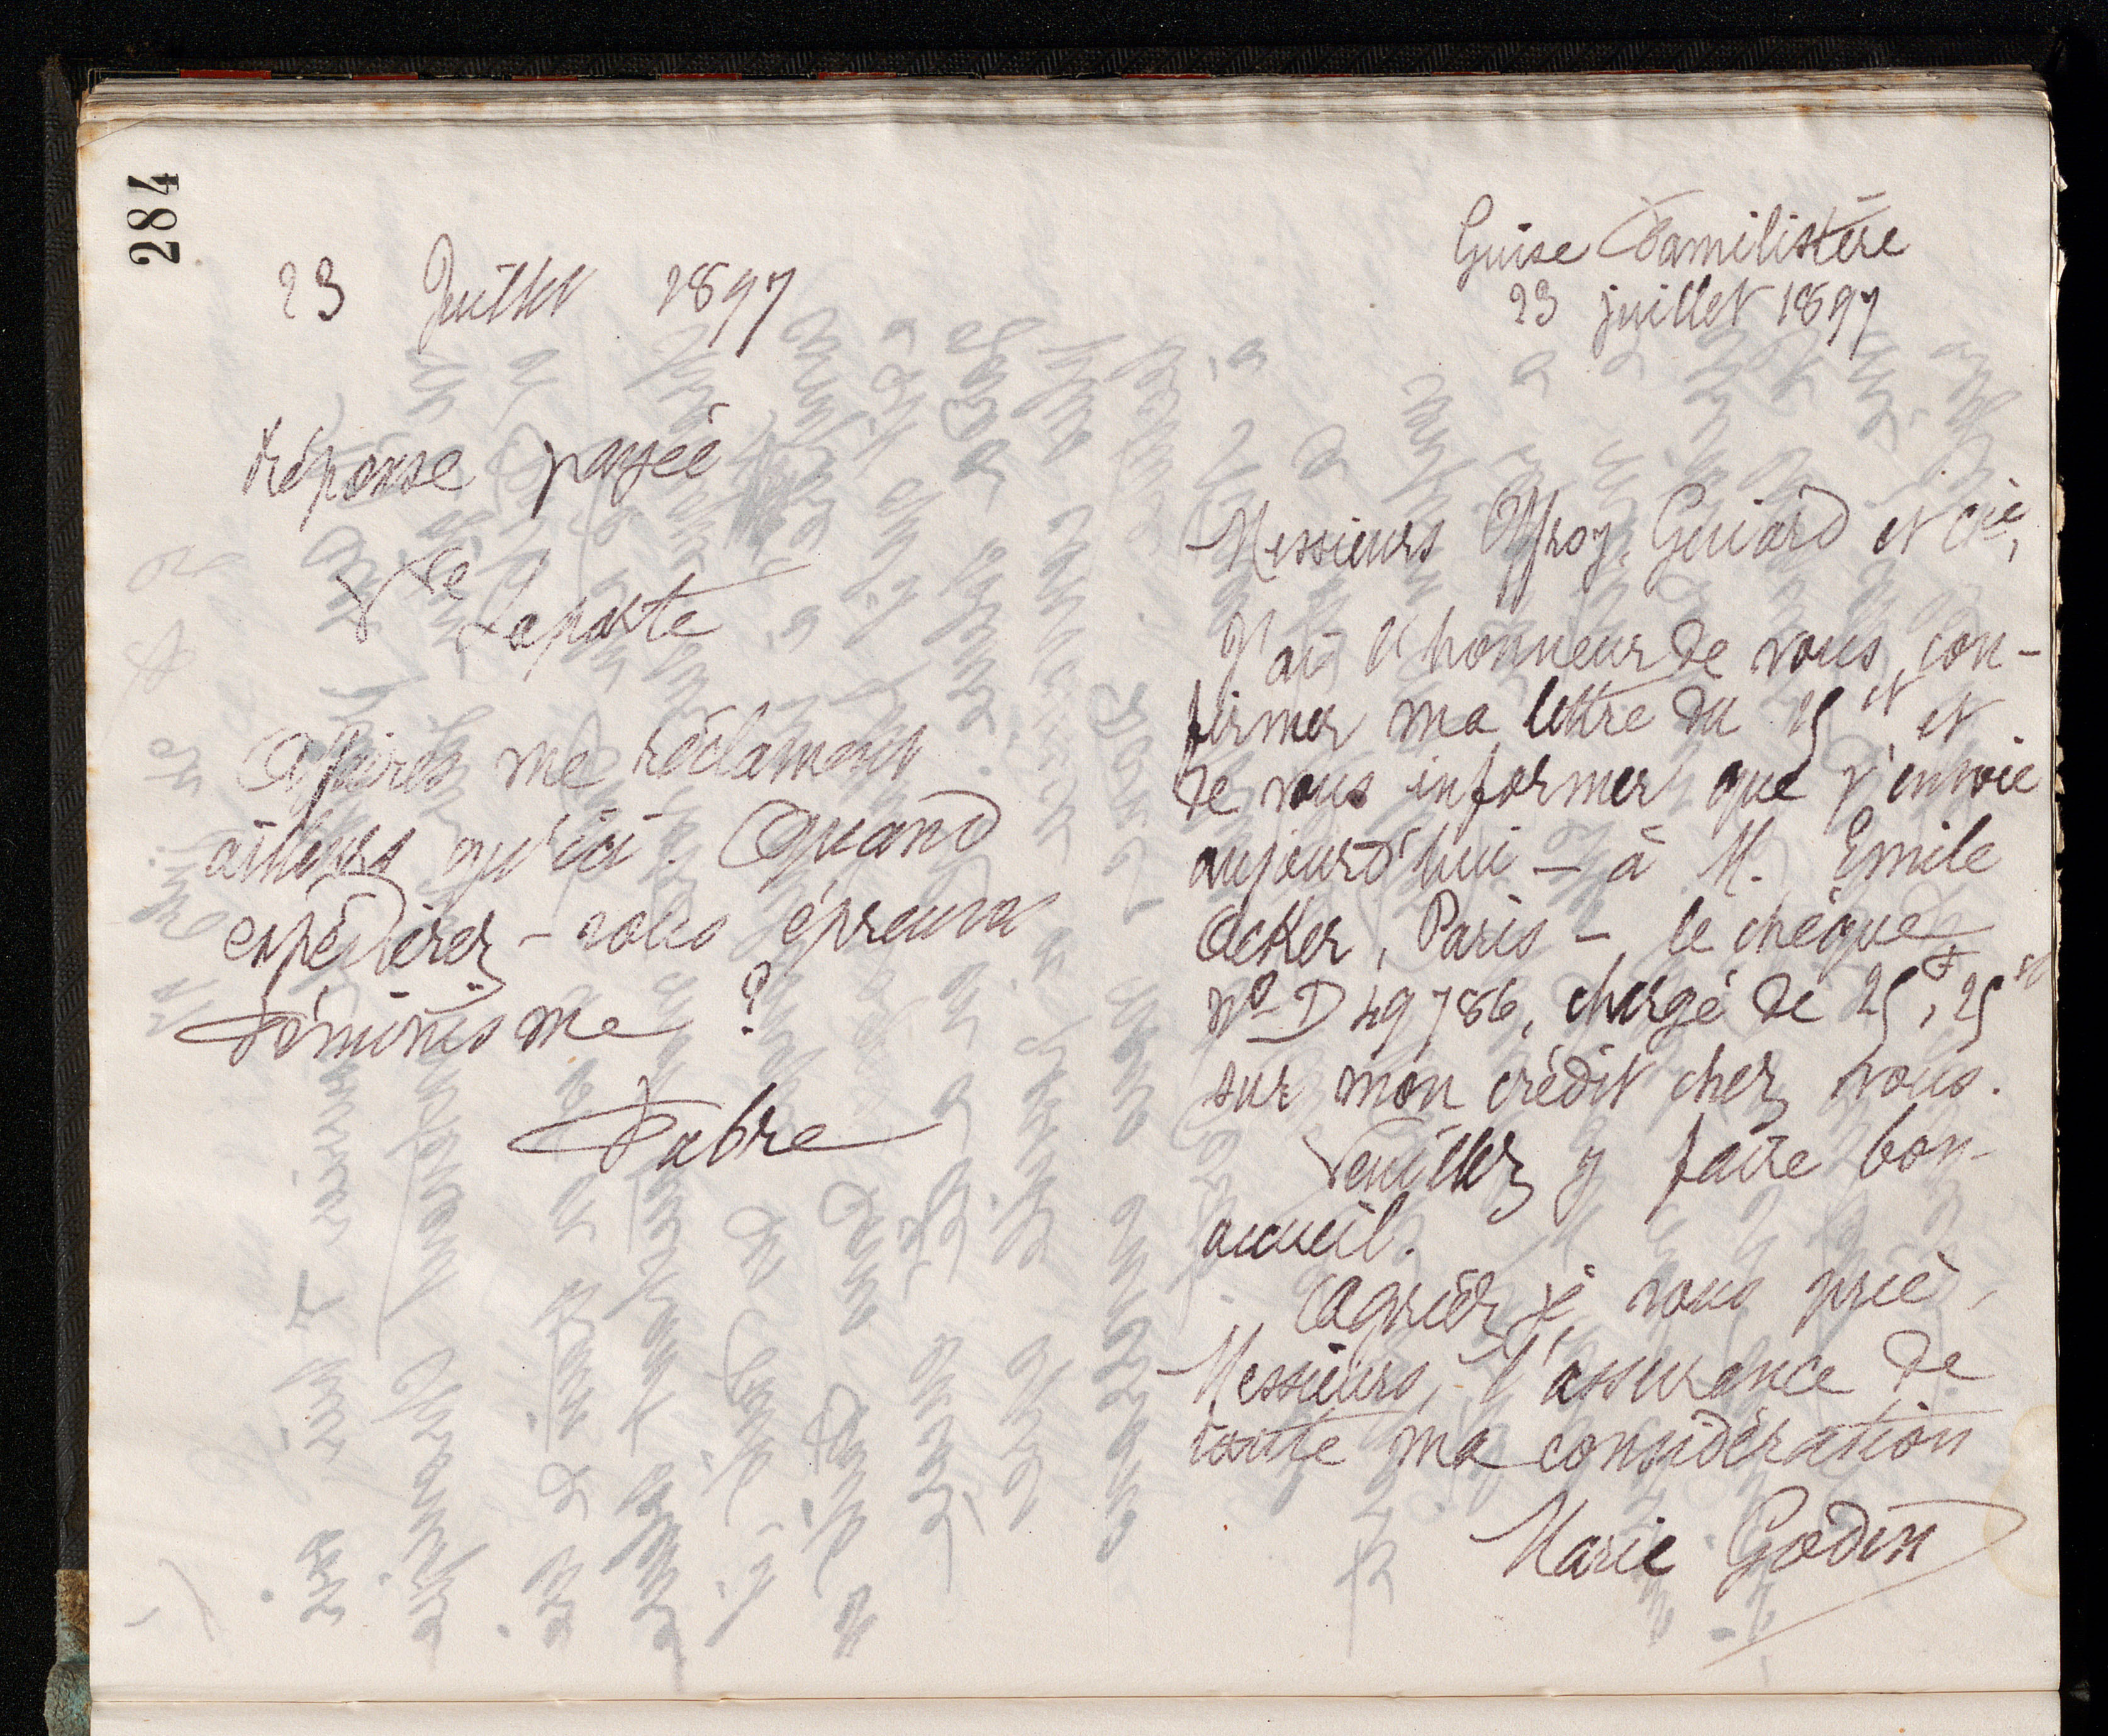 284
23 Juillet 1897
Réponse payée
Vve Laporte
Affaires me réclament
ailleurs qu'ici. Quand
expédierez-vous épreuves
Féminisme ?
Fabre
Guise Familistère
23 juillet 1897
Messieurs Offroy, Guiard et Cie,
J'ai l'honneur de vous con-
firmer ma lettre du 15 ct et
de vous informer que j'envoie
aujourd'hui – à M. Emile
Acker, Paris – le chèque
No D 49786, chargé de 25f,25
sur mon crédit chez vous.
Veuillez y faire bon
accueil.
Agréez je vous prie,
Messieurs, l'assurance de
toute ma considération
Marie Godin